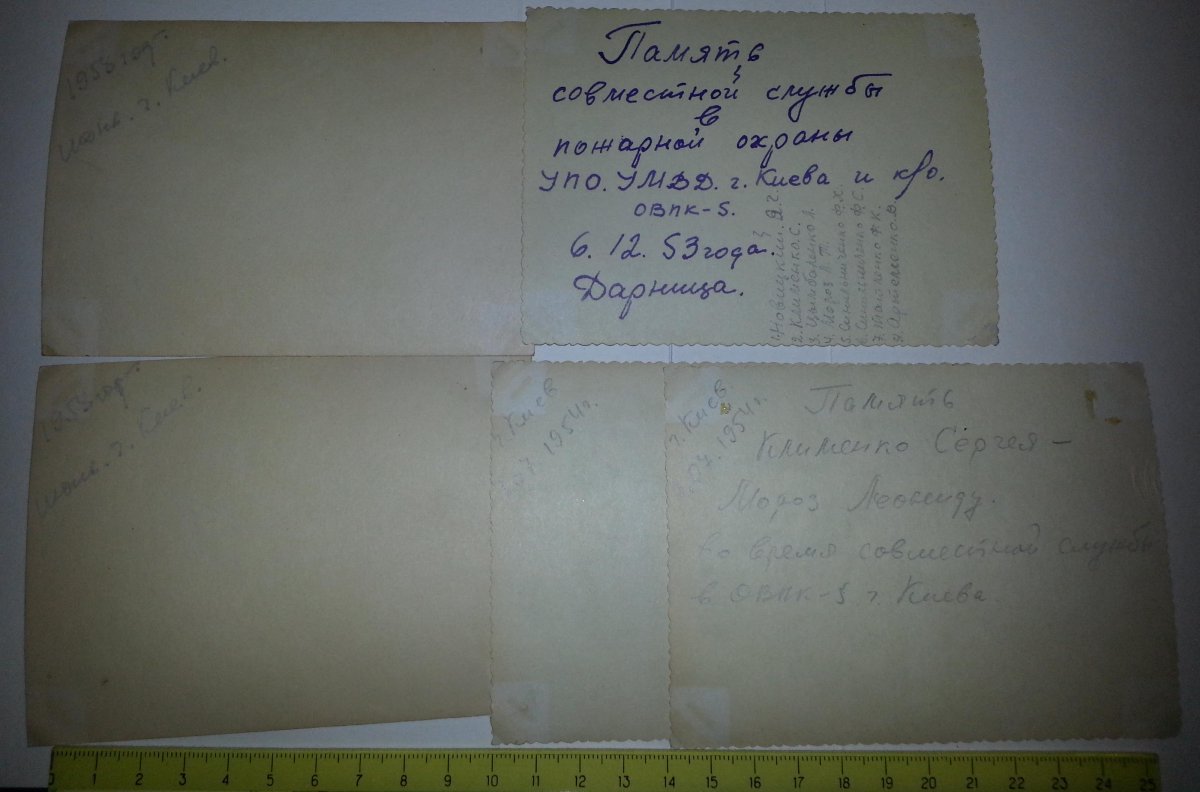 1953 год.
июнь. г. Киев.
Память
совместной службы
в
пожарной охраны
УПО. УМВД. г. Киева и к/о.
ОВПК-5.
6. 12. 53 года.
Дарница.
1. Новицкий. Д. Г.
2. Клименко. С.
3. Цымбаленко Л.
4. Мороз Л. Т.
5. Синельниченко Ф. Х.
6. Ф. С.
7. Ф. К.
1953 год.
июнь. г. Киев.
г. Киев
07. 1954 г.
г. Киев
07. 1954 г.
Память
Клименко Сергея –
Мороз Леониду.
во время совместной службы
в ОВПК-5 г. Киева.
0 1 2 3 4 5 6 7 8 9 10 11 12 13 14 15 16 17 18 19 20 21 22 23 24 25